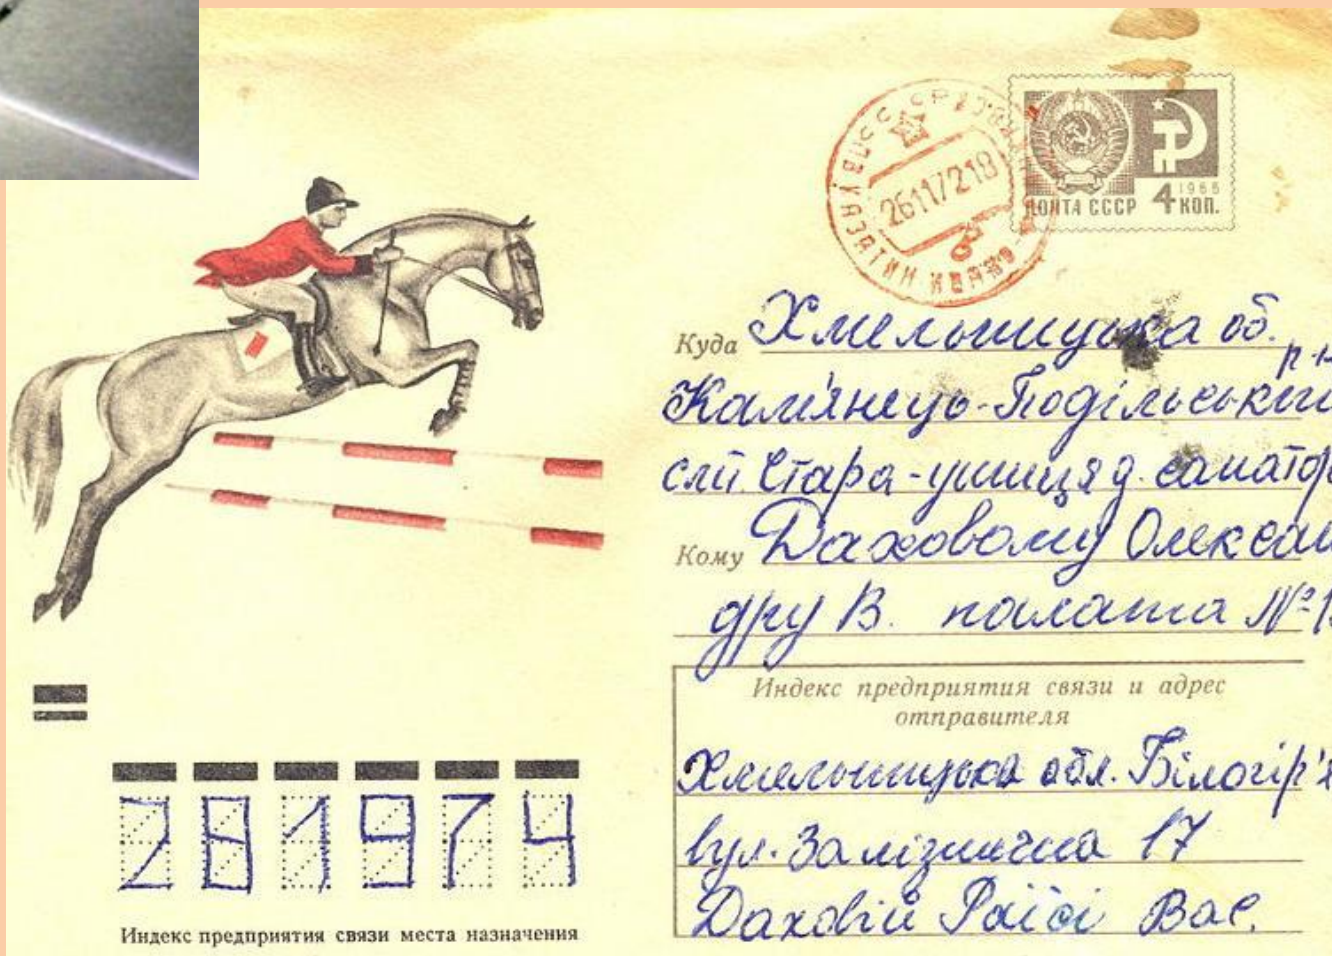 26117218
ПОЧТА СССР 4 КОП.
1966
Куда Хмельницька об.
р-н
Кам'янець-Подільський
смт. Стара-ушиця д. санатор
Кому Даховому Олексан
дру В. палата №1
Индекс предприятия связи и адрес
отправителя
Хмельницька обл. Білогір'я
вул. Залізнична 17
Даховій Раїсі Вас.
281974
Индекс предприятия связи места назначения